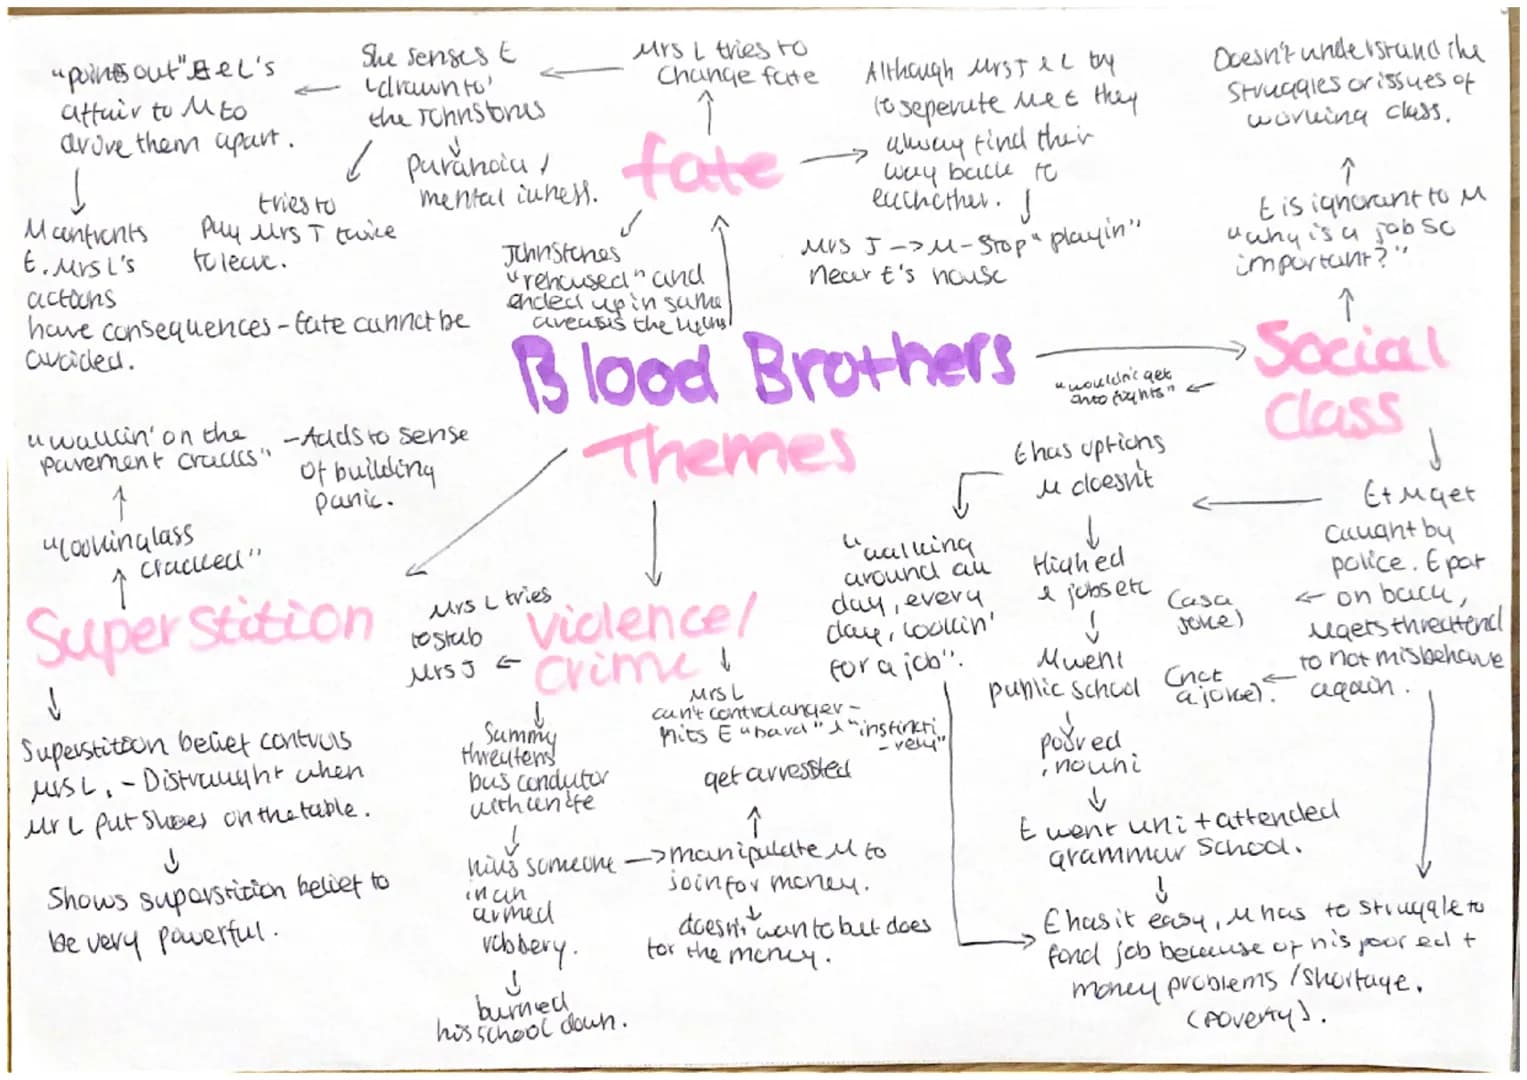 Blood Brothers
Themes
fate
Mrs L tries to
change fate
She senses E
"drawn to'
the Johnstones
paranoia /
mental illness.
tries to
Pay Mrs J twice
to leave.
"points out" E & L's
affair to M to
drive them apart.
M confronts
E. Mrs L's
actions
have consequences - fate cannot be
avoided.
Johnstones
"rehoused" and
ended up in same
areas as the Lyons
Although Mrs J & L try
to seperate M & E they
alway find their
way back to
eachother.
Mrs J -> M - Stop "playin"
near E's house
Social
Class
E is ignorant to M
"why is a job so
important?"
Doesn't understand the
struggles or issues of
working class.
"wouldn't get
into fights"
E + M get
caught by
police. E pat
on back,
M gets threattend
to not misbehave
again.
(as a
joke)
(not
a joke).
E has options
M doesn't
"walking
around all
day, every
day, lookin'
for a job".
High ed
& jobs etc
M went
public school
poor ed
, no uni
E went uni + attended
grammar school.
E has it easy, M has to struggle to
find job because of his poor ed +
money problems / shortage.
(poverty).
Violence/
crime
Mrs L tries
to stab
Mrs J
Mrs L
can't control anger -
hits E "hard" & "instincti
- vely"
Sammy
threatens
bus condutor
with knife
kills someone
in an
armed
robbery.
burned
his school down.
manipulate M to
join for money.
get arressted
doesn't want to but does
for the money.
Superstition
"lookin glass
cracked"
"walkin' on the
pavement cracks"
- Adds to sense
of building
panic.
Superstition belief controls
Mrs L. - Distraught when
Mr L put shoes on the table.
Shows superstition belief to
be very powerful.